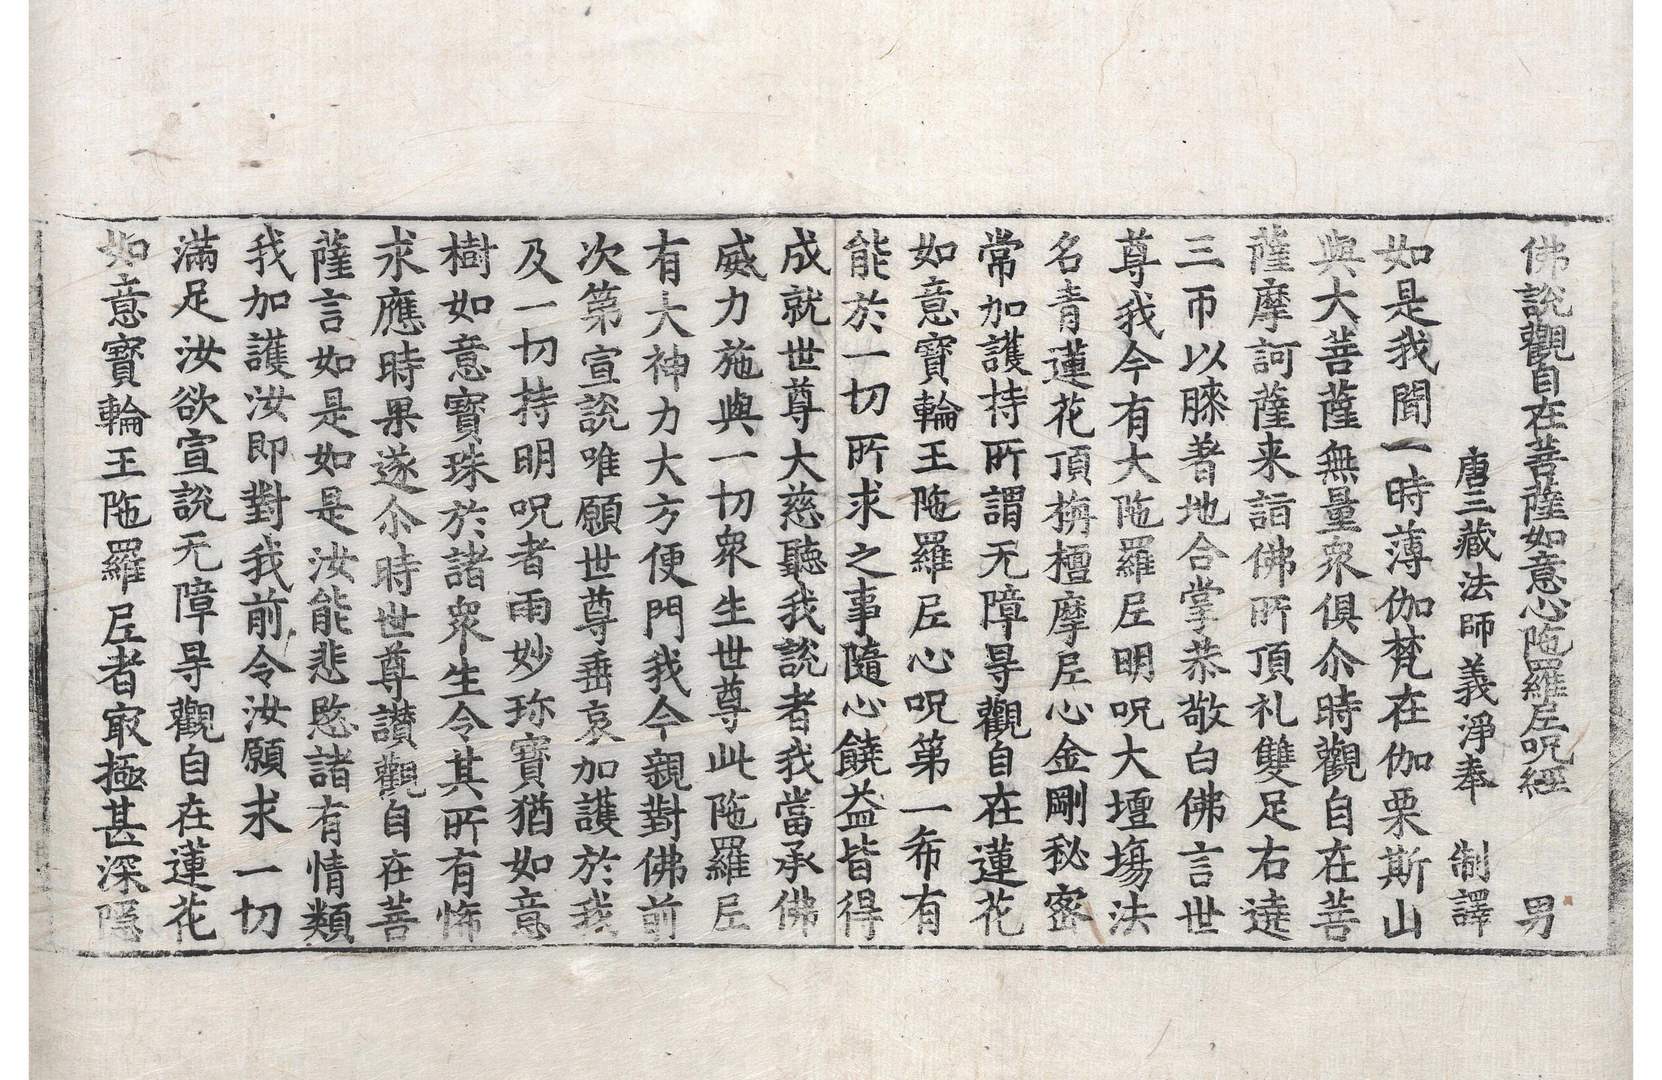 佛說觀自在菩薩如意心陁羅𡰱呪經 男
唐三藏法師義淨奉 制譯
如是我聞一時薄伽梵在伽栗斯山
與大菩薩無量衆俱尒時觀自在菩
薩摩訶薩来詣佛所頂礼雙足右遶
三帀以膝著地合掌恭敬白佛言世
尊我今有大陁羅𡰱明呪大壇塲法
名青蓮花頂栴檀摩𡰱心金剛秘密
常加護持所謂无障㝵觀自在蓮花
如意寶輪王陁羅𡰱心呪第一希有
能於一切所求之事隨心饒益皆得
成就世尊大慈聽我說者我當承佛
威力施與一切衆生世尊此陁羅𡰱
有大神力大方便門我今親對佛前
次第宣說唯願世尊垂哀加護於我
及一切持明呪者雨妙珎寶猶如意
樹如意寶珠於諸衆生令其所有悕
求應時果遂尒時世尊讃觀自在菩
薩言如是如是汝能悲愍諸有情類
我加護汝即對我前令汝願求一切
滿足汝欲宣說无障㝵觀自在蓮花
如意寶輪王陁羅𡰱者㝡極甚深隱